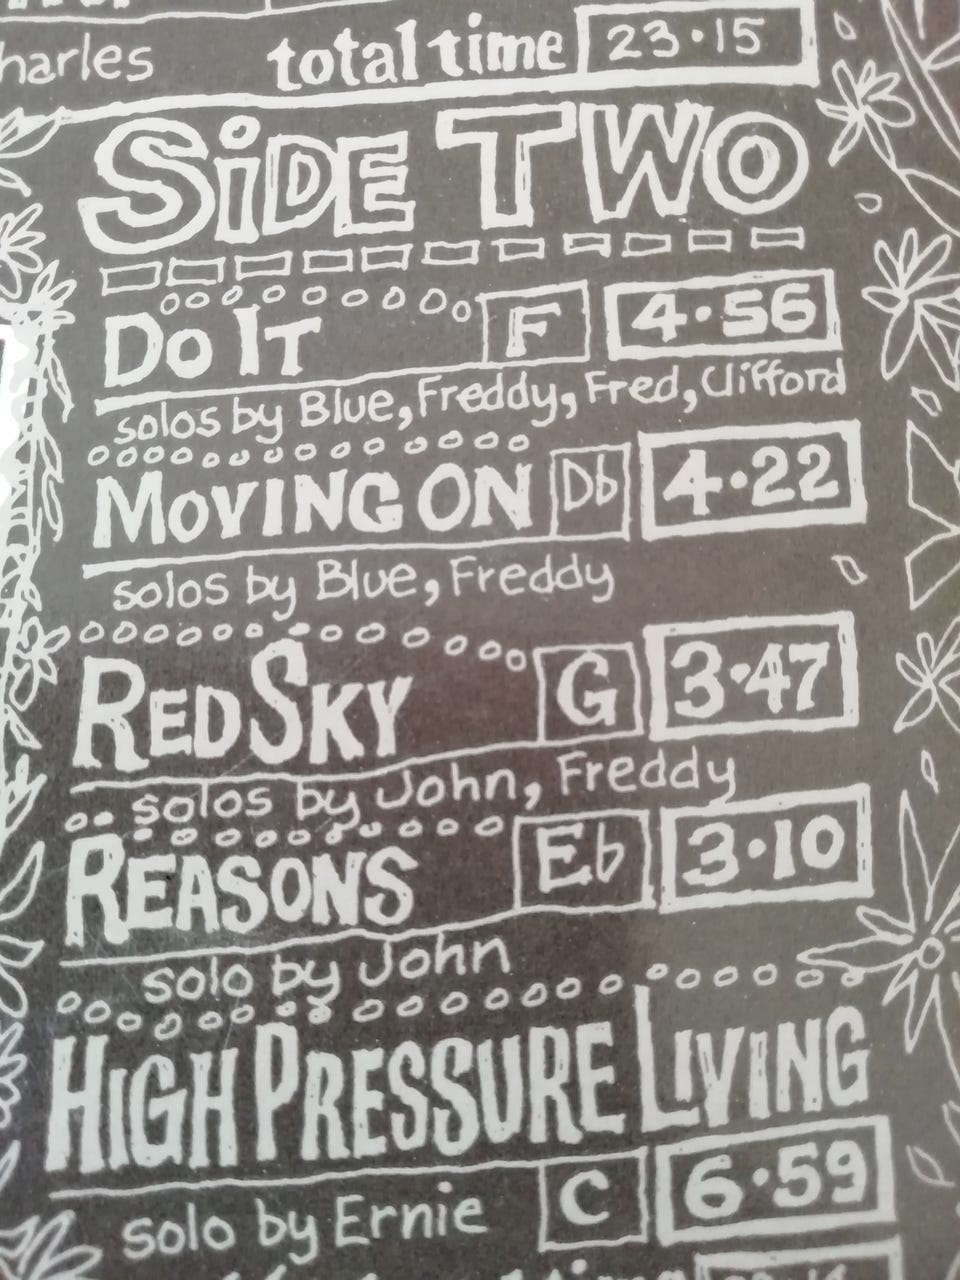 total time 23·15
SiDE TWO
Do It F 4·56
solos by Blue, Freddy, Fred, Clifford
MOVING ON Db 4·22
solos by Blue, Freddy
RED SKY G 3·47
solos by John, Freddy
REASONS Eb 3·10
solo by John
HIGH PRESSURE LIVING
solo by Ernie C 6·59